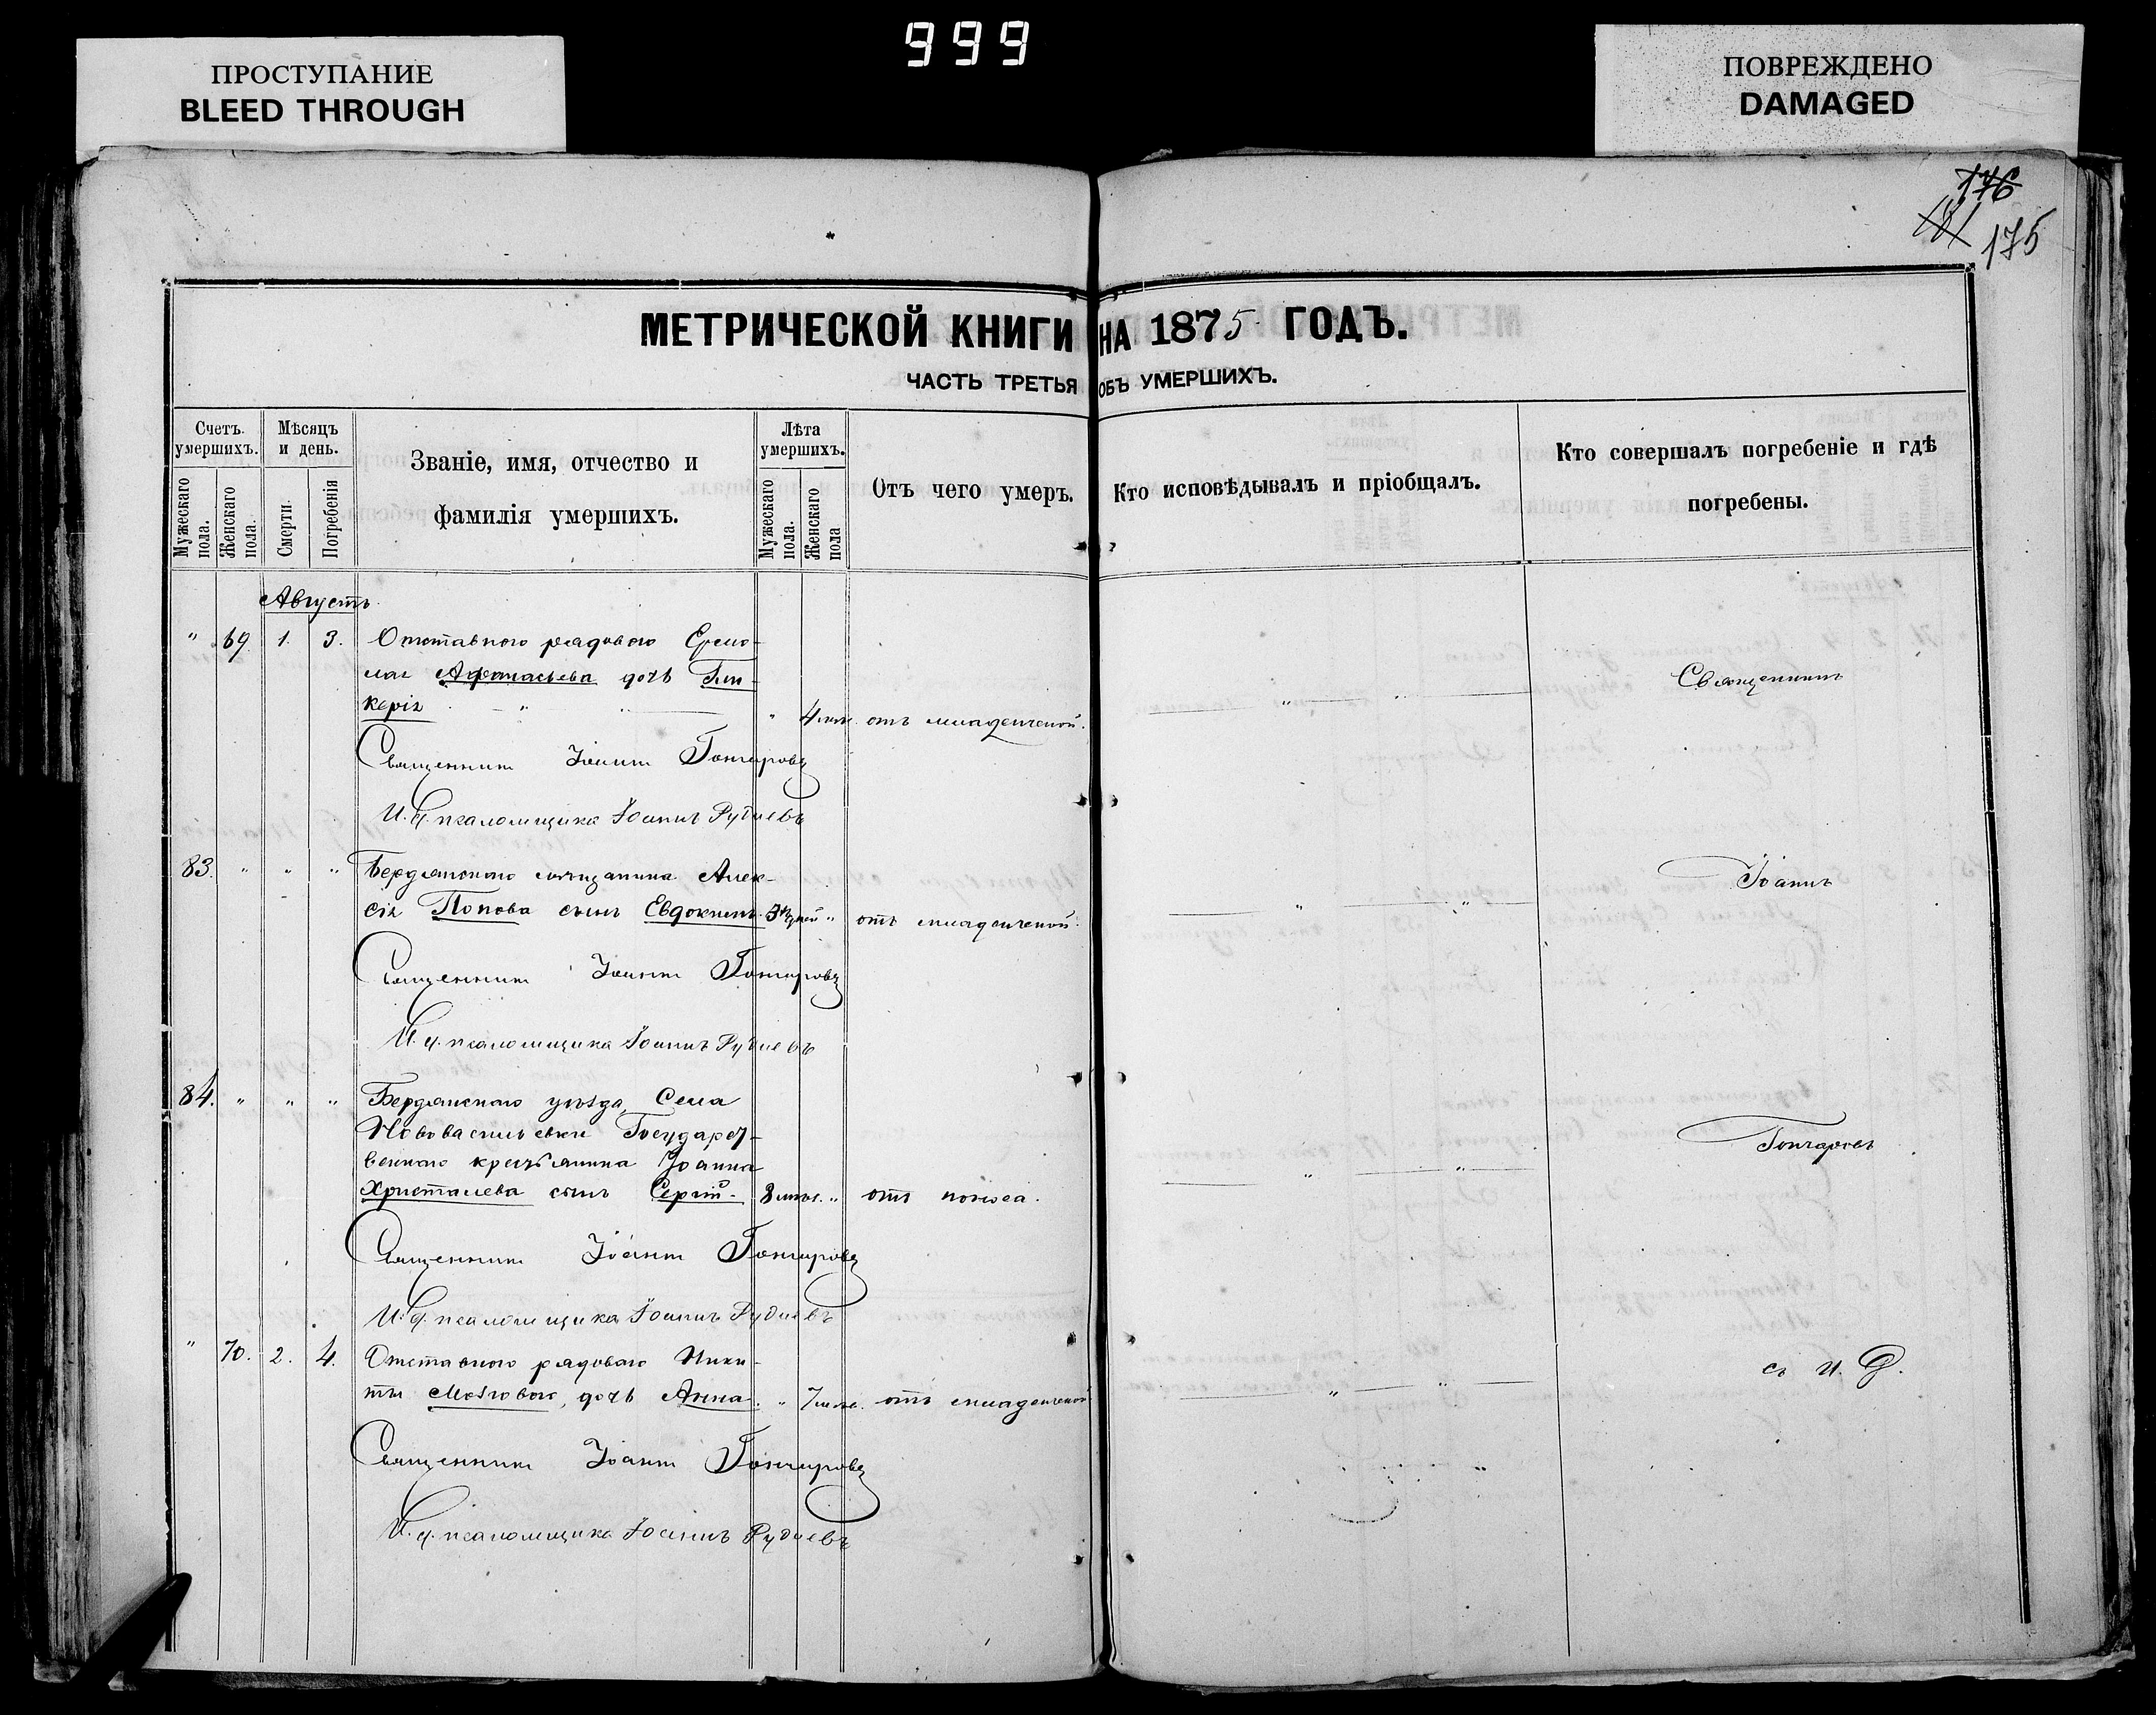 999
ПРОСТУПАНИЕ
BLEED THROUGH
ПОВРЕЖДЕНО
DAMAGED
176
181
175
МЕТРИЧЕСКОЙ КНИГИ НА 1875 ГОДЪ.
ЧАСТЬ ТРЕТЬЯ ОБЪ УМЕРШИХЪ.
Счетъ умершихъ.
Мужескаго пола.
Женскаго пола.
Мѣсяцъ и день.
Смерти.
Погребенія
Званіе, имя, отчество и
фамилія умершихъ.
Лѣта умершихъ.
Мужескаго пола.
Женскаго пола
Отъ чего умеръ.
Кто исповѣдывалъ и пріобщалъ.
Кто совершалъ погребеніе и гдѣ
погребены.
Августъ
" 69 1. 3. Отставного рядового Ермо-
лая Афанасьева дочь Гли-
керія " " " 4 мѣс. отъ младенческой. " "
Священникъ
Священникъ Іоаннъ Гончаровъ
И. д. псаломщика Іоаннъ Рудневъ
83. " " " Бердянскаго мѣщанина Алек-
сія Попова сынъ Евдокимъ. дней " отъ младенческой. " "
Іоаннъ
Священникъ Іоаннъ Гончаровъ
И. д. псаломщика Іоаннъ Рудневъ
84. " " " Бердянскаго уѣзда, Села
Нововасильевки Государст-
веннаго крестьянина Іоанна
Христалева сынъ Сергій. 8 мѣс. " отъ поноса. " "
Гончаровъ
Священникъ Іоаннъ Гончаровъ
И. д. псаломщика Іоаннъ Рудневъ
" 70. 2. 4. Отставного рядоваго Ники-
ты Мозгового, дочь Анна. " 7 мѣс. отъ младенческой " "
съ И. Д.
Священникъ Іоаннъ Гончаровъ
И. д. псаломщика Іоаннъ Рудневъ